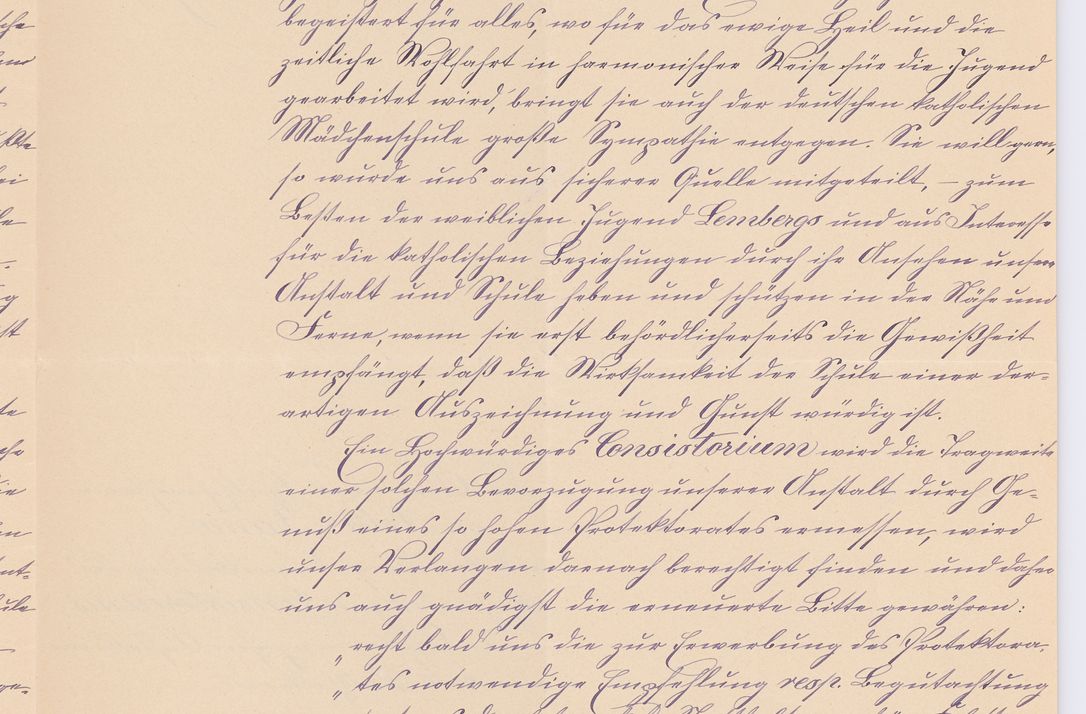 begeistert für alles, wo für das ewige Heil und die
zeitliche Wohlfahrt in harmonischer Weise für die Jugend
gearbeitet wird, bringt sie auch der deutschen katholischen
Mädchenschule große Sympathie entgegen. Sie will gern,
so wurde uns aus sicherer Quelle mitgeteilt, – zum
Besten der weiblichen Jugend Lembergs und aus Interesse
für die katholischen Beziehungen durch ihr Ansehen unsere
Anstalt und Schule heben und schützen in der Nähe und
Ferne, wenn sie erst behördlicherseits die Gewißheit
empfängt, daß die Wirksamkeit der Schule einer der-
artigen Auszeichnung und Gunst würdig ist.
Ein Hochwürdiges Consistorium wird die Tragweite
einer solchen Bevorzugung unserer Anstalt durch Ge-
nuß eines so hohen Protektorates ermessen, wird
unser Verlangen darnach berechtigt finden und daher
uns auch gnädigst die erneuerte Bitte gewähren:
„recht bald uns die zur Erwerbung des Protektora-
„tes notwendige Empfehlung resp. Begutachtung